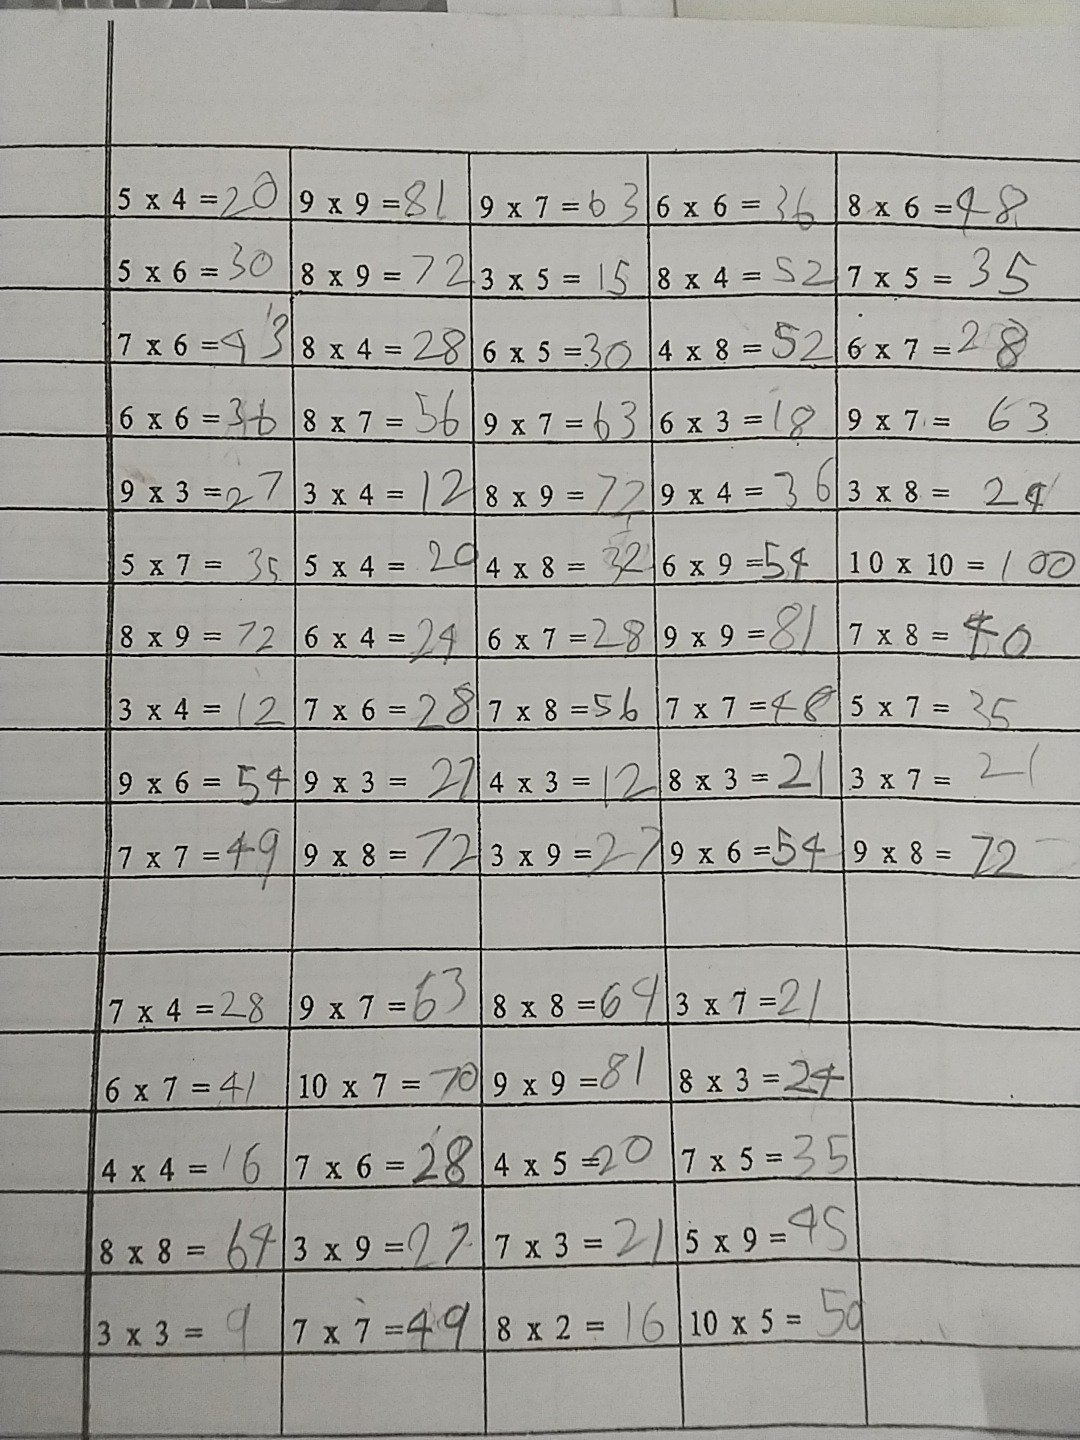 5 x 4 = 20 9 x 9 = 81 9 x 7 = 63 6 x 6 = 36 8 x 6 = 48
5 x 6 = 30 8 x 9 = 72 3 x 5 = 15 8 x 4 = 52 7 x 5 = 35
7 x 6 = 43 8 x 4 = 28 6 x 5 = 30 4 x 8 = 52 6 x 7 = 28
6 x 6 = 36 8 x 7 = 56 9 x 7 = 63 6 x 3 = 18 9 x 7 = 63
9 x 3 = 27 3 x 4 = 12 8 x 9 = 72 9 x 4 = 36 3 x 8 = 24
5 x 7 = 35 5 x 4 = 20 4 x 8 = 32 6 x 9 = 54 10 x 10 = 100
8 x 9 = 72 6 x 4 = 24 6 x 7 = 28 9 x 9 = 81 7 x 8 = 40
3 x 4 = 12 7 x 6 = 28 7 x 8 = 56 7 x 7 = 48 5 x 7 = 35
9 x 6 = 54 9 x 3 = 27 4 x 3 = 12 8 x 3 = 21 3 x 7 = 21
7 x 7 = 49 9 x 8 = 72 3 x 9 = 27 9 x 6 = 54 9 x 8 = 72
7 x 4 = 28 9 x 7 = 63 8 x 8 = 64 3 x 7 = 21
6 x 7 = 41 10 x 7 = 70 9 x 9 = 81 8 x 3 = 24
4 x 4 = 16 7 x 6 = 28 4 x 5 = 20 7 x 5 = 35
8 x 8 = 64 3 x 9 = 27 7 x 3 = 21 5 x 9 = 45
3 x 3 = 9 7 x 7 = 49 8 x 2 = 16 10 x 5 = 50